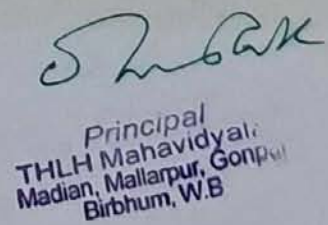 Principal
THLH Mahavidyal
Madian, Mallarpur, Gonpu
Birbhum, W.B